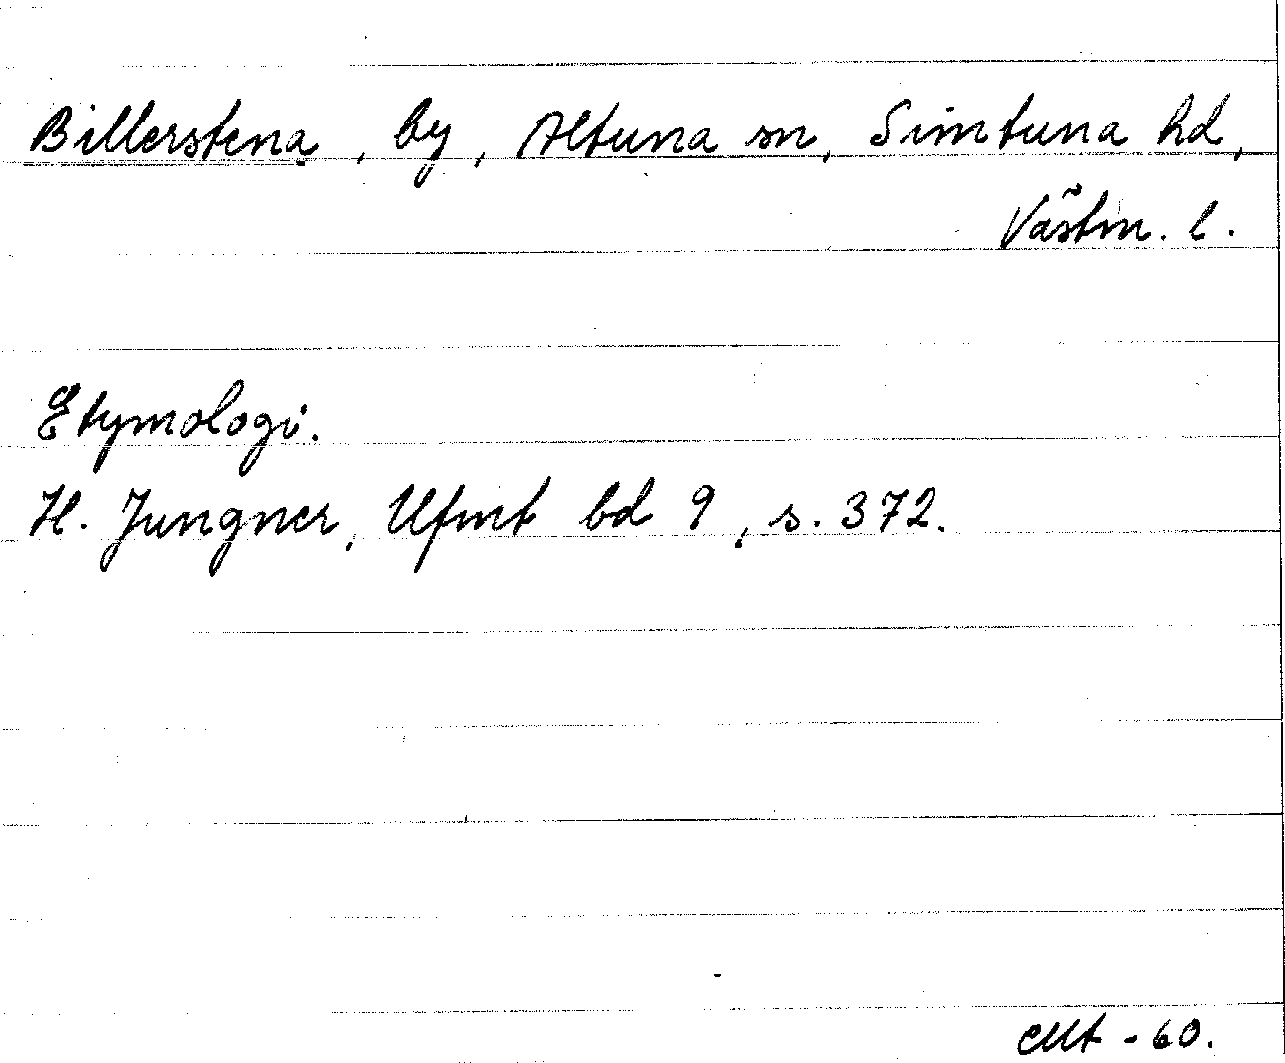 Billerstena, by, Altuna sn, Simtuna hd,
Västm. l.
Etymologi.
H. Jungner, Ufmt bd 9, s. 372.
-60.